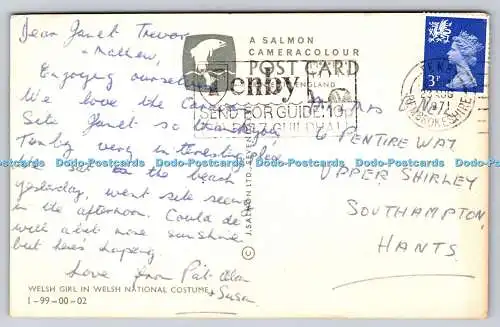 Dear Janet Trevor
- Mathew,
Enjoying ourselves
We love the
Site Janet so
Tenby very interesting place
sat on the beach
yesterday, went site seeing
in the afternoon. Could do
with a bit more sunshine
but here's hoping.
Love from Pat. Alan
+ Susan
WELSH GIRL IN WELSH NATIONAL COSTUME
1-99-00-02
A SALMON
CAMERACOLOUR
POST CARD
ENGLAND
Tenby
SEND FOR GUIDE
GUILDHALL
© J. SALMON LTD.
PEMBROKESHIRE
3P
PENTIRE WAY
UPPER SHIRLEY
SOUTHAMPTON
HANTS.
Dodo-Postcards Dodo-Postcards Dodo-Postcards Dodo-Postcards Dodo-Postcards Dodo-Postcards